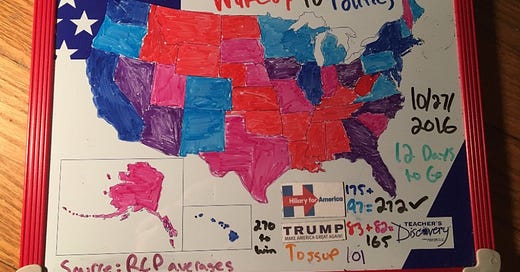 WakeUp To Politics
10/27/
2016
12 Days
to Go
Hillary for America
175+
97=272✓
270
to
win
TRUMP
MAKE AMERICA GREAT AGAIN!
83+82=
165
Tossup 101
TEACHER'S
Discovery
Source: RCP averages